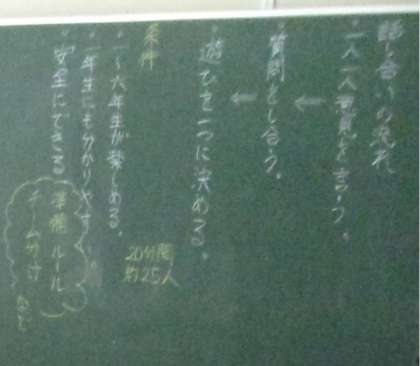 話し合いの流れ
・一人一人意見を言う。
↓
・質問をし合う。
↓
・遊びを一つに決める。
条件
・一～六年生が楽しめる。
・一年生にも分かりやすい。
・安全にできる
20分間
約25人
準備 ルール
チーム分け
など